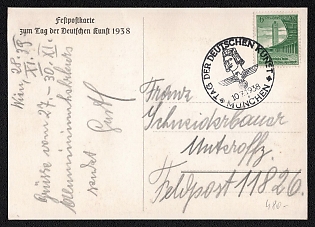 Festpostkarte
zum Tag der Deutschen Kunst 1938
Wien, 28.
XI. 39
Grüsse vom 27.–30. XI.
sendet
TAG DER DEUTSCHEN KUNST
10.7.1938
MÜNCHEN
6
Franz
Schneiderbauer
Unteroffz.
Feldpost 11826.
480.-